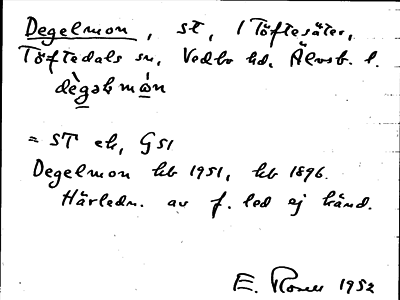 Degelmon, st, 1 Töftesäter,
Töftedals sn, Vedbo hd, Älvsb. l.
= ST ek, GS1
Degelmon kb 1951, kb 1896.
Härledn. av f. led ej känd.
E. Rosell 1952